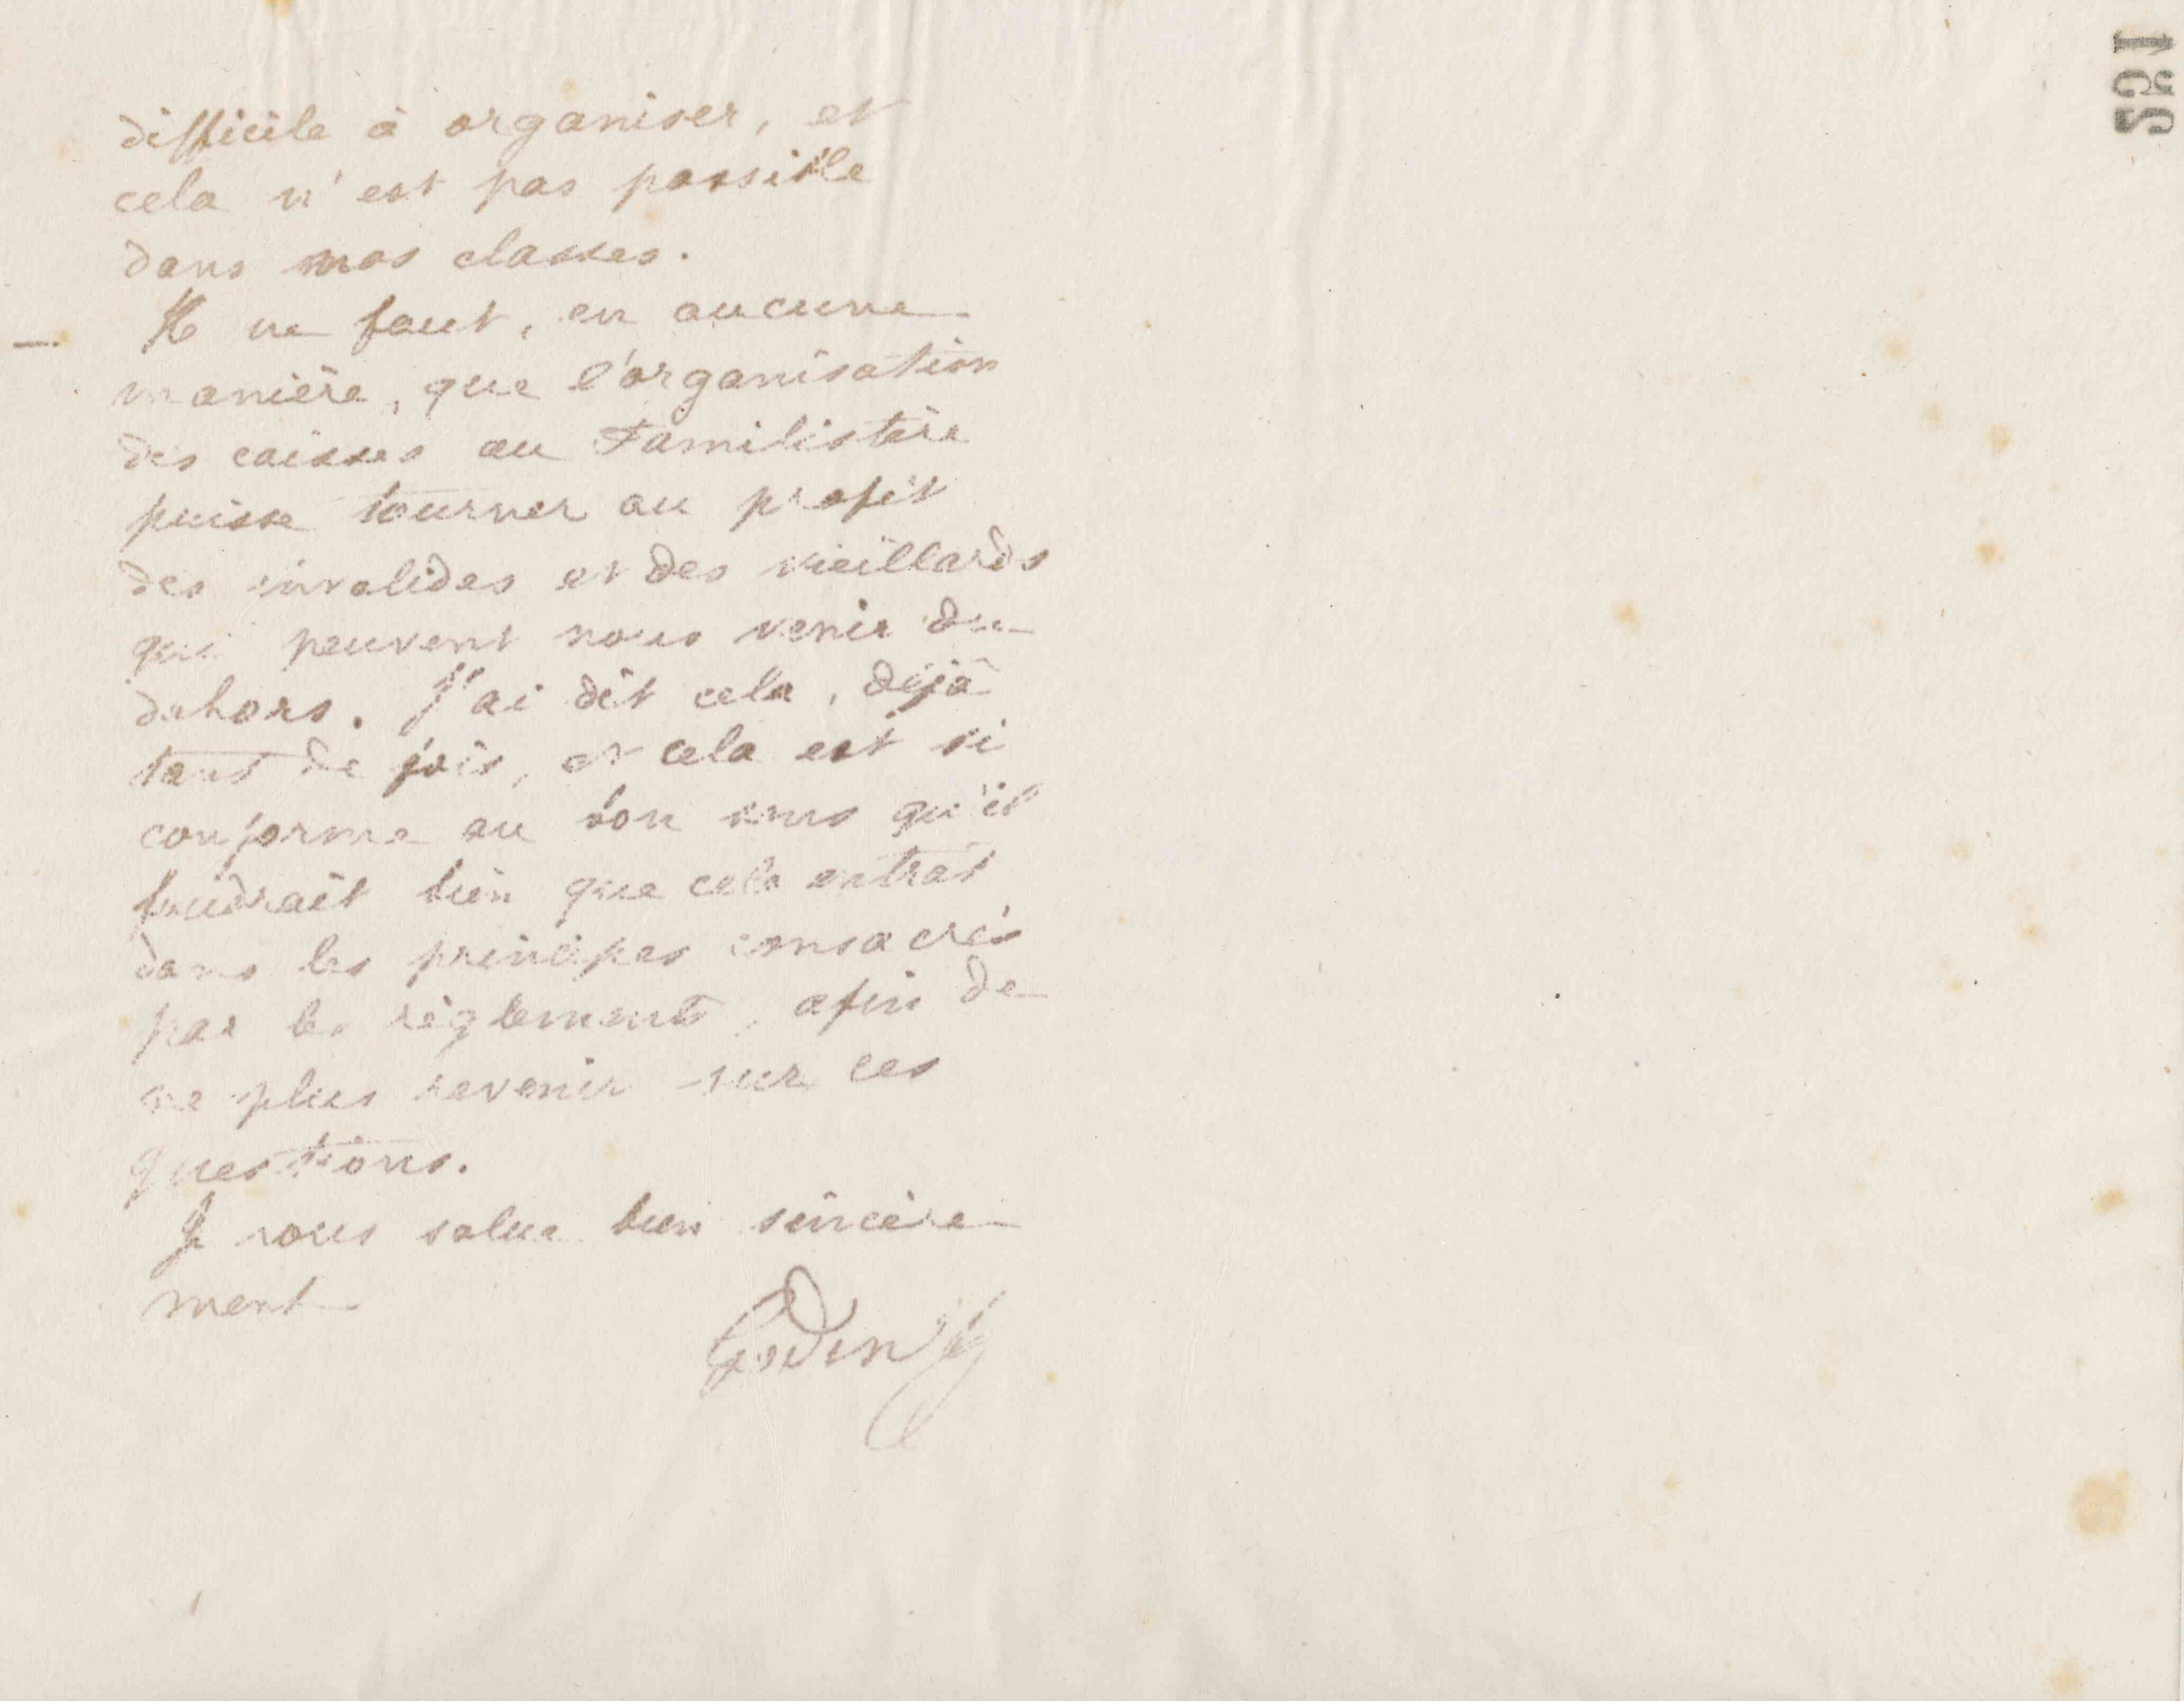 difficile à organiser, et
cela n'est pas possible
dans nos classes.
Il ne faut, en aucune
manière, que l'organisation
des caisses au Familistère
puisse tourner au profit
des invalides et des vieillards
qui peuvent nous venir du
dehors. J'ai dit cela, déjà
tant de fois, et cela est si
conforme au bon sens qu'il
faudrait bien que cela entrât
dans les principes consacrés
par les règlements, afin de
ne plus revenir sur ces
questions.
Je vous salue bien sincère-
ment
Godin